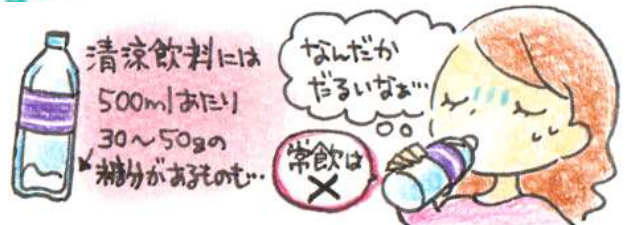 清涼飲料には
500mlあたり
30〜50gの
糖分があるものも…
なんだか
だるいなぁ…
常飲は
×